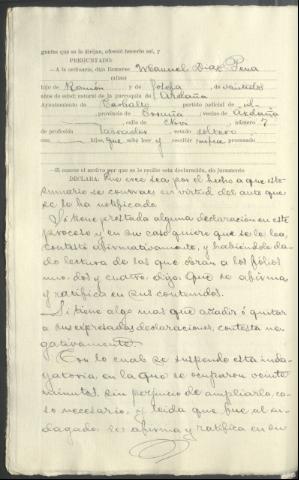 guntas que se le dirijan, ofreció hacerlo así, y
PREGUNTADO:
—A la ordinaria, dijo llamarse Manuel Díaz Pena
hijo de Ramón y de Josefa, de veintidos
años de edad; natural de la parroquia de Ardaña
Ayuntamiento de Carballo partido judicial de id.
, provincia de Coruña, vecino de Ardaña
, calle de , número 7
de profesión labrador, estado soltero
hijos, que sabe leer y escribir
—El conoce el motivo por que se le recibe esta declaración, sin juramento
DECLARA: Que cree sea por el hecho a que este
sumario se contrae en virtud del auto que
se le ha notificado.
Si tiene prestada alguna declaración en este
proceso y en su caso quiere que se le lea,
contestó afirmativamente, y habiéndole da-
do lectura de las que obran a los folios
uno, dos y cuatro, digo: Que se afirma
y ratifica en sus contenidos.
Si tiene algo mas que añadir ó quitar
a sus expresadas declaraciones, contesta ne-
gativamente.
Con lo cual se suspendo esta inda-
gatoria en la que se ocuparon veinte
minutos, sin perjuicio de ampliarla, ca-
so necesario, y leida que fue al in-
dagado se afirma y ratifica en su